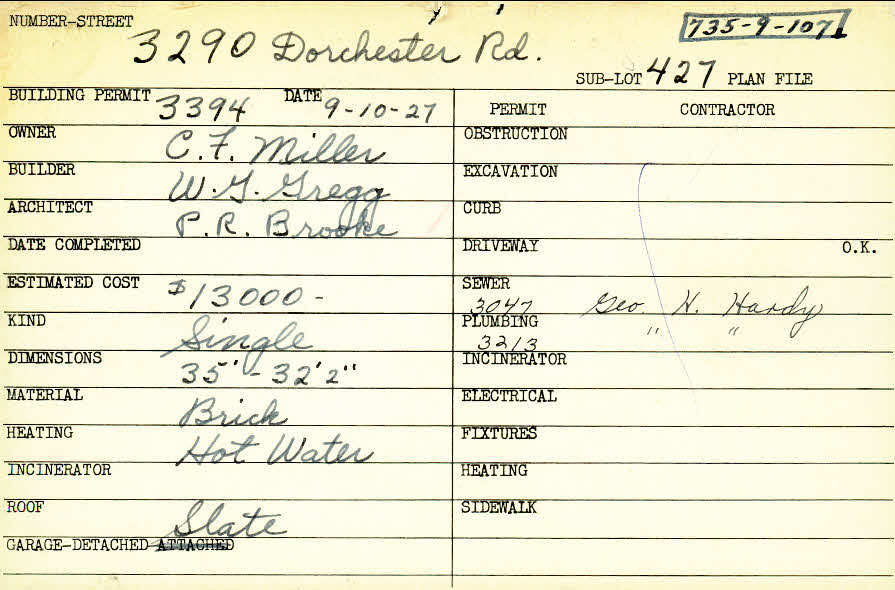 NUMBER-STREET
3290 Dorchester Rd.
735-9-107
SUB-LOT 427 PLAN FILE
BUILDING PERMIT 3394 DATE 9-10-27
OWNER C. F. Miller
BUILDER W. G. Gregg
ARCHITECT P. R. Brooke
DATE COMPLETED
ESTIMATED COST $13000-
KIND Single
DIMENSIONS 35' - 32'2"
MATERIAL Brick
HEATING Hot Water
INCINERATOR
ROOF Slate
GARAGE-DETACHED ATTACHED
PERMIT CONTRACTOR
OBSTRUCTION
EXCAVATION
CURB
DRIVEWAY O.K.
SEWER
3047 Geo. H. Hardy
PLUMBING " "
3213
INCINERATOR
ELECTRICAL
FIXTURES
HEATING
SIDEWALK